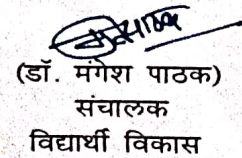 (डॉ. मंगेश पाठक)
संचालक
विद्यार्थी विकास